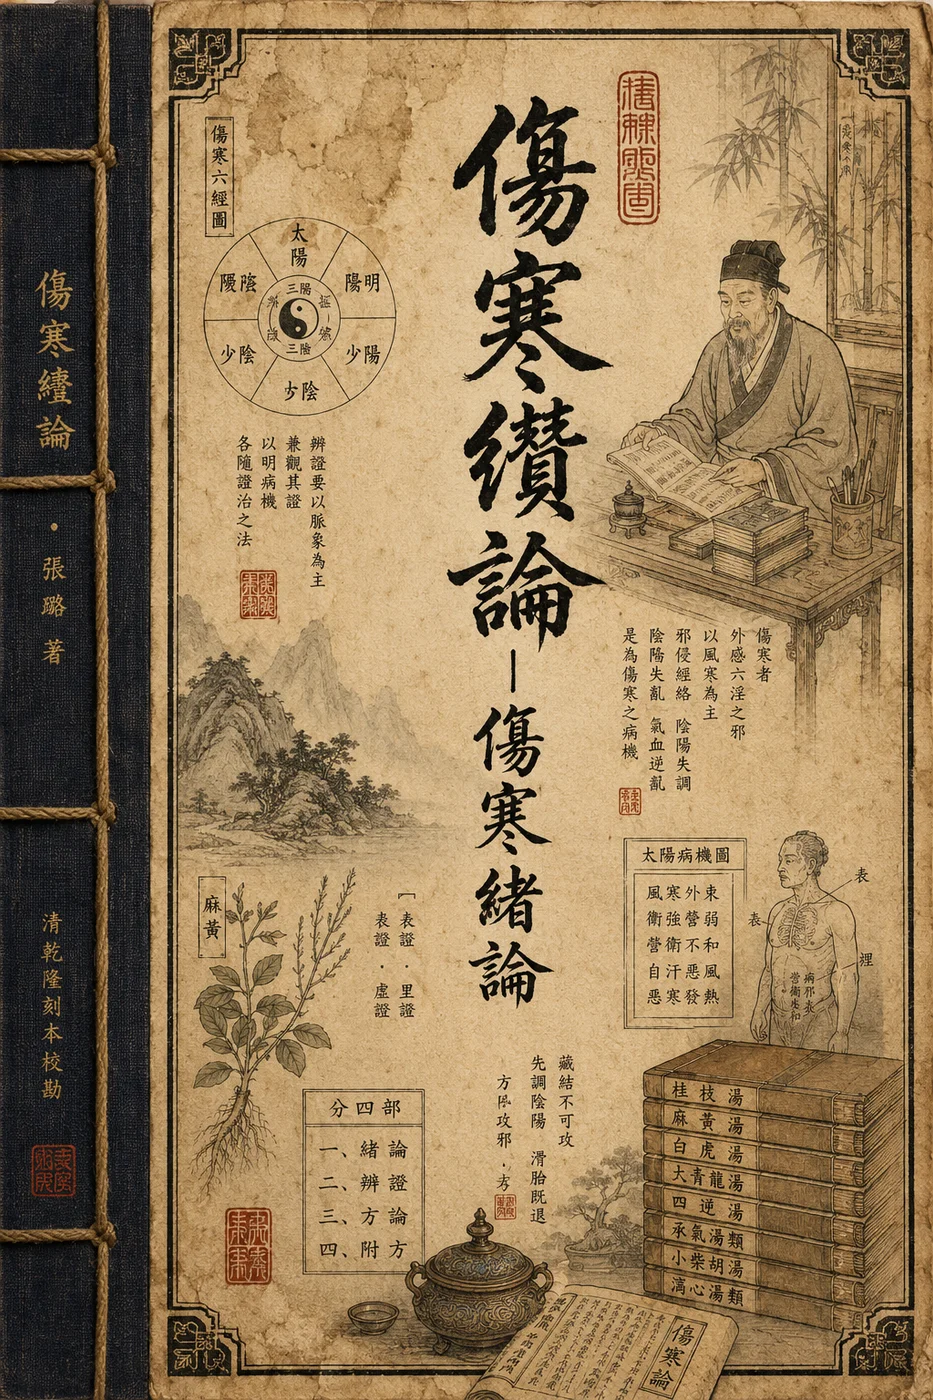 傷寒纘論
傷寒緒論
傷寒論
張璐著
清乾隆刻本校勘
傷寒六經圖
太陽
陽明
少陽
少陰
三陽
三陰
辨證要以脈象為主
兼觀其證
以明病機
各隨證治之法
傷寒者
外感六淫之邪
以風寒為主
邪侵經絡 陰陽失調
氣血逆亂
是為傷寒之病機
太陽病機圖
風寒外束
衛強營弱
營衛不和
自汗惡風
惡寒發熱
表
表
麻黃
表證・里證
表證・虛證
藏結不可攻
先調陰陽 滑胎既退
分四部
一、緒論
二、辨證
三、方論
四、附方
桂枝湯
麻黃湯
白虎湯
大青龍湯
四逆湯
承氣湯類
小柴胡湯
傷寒論